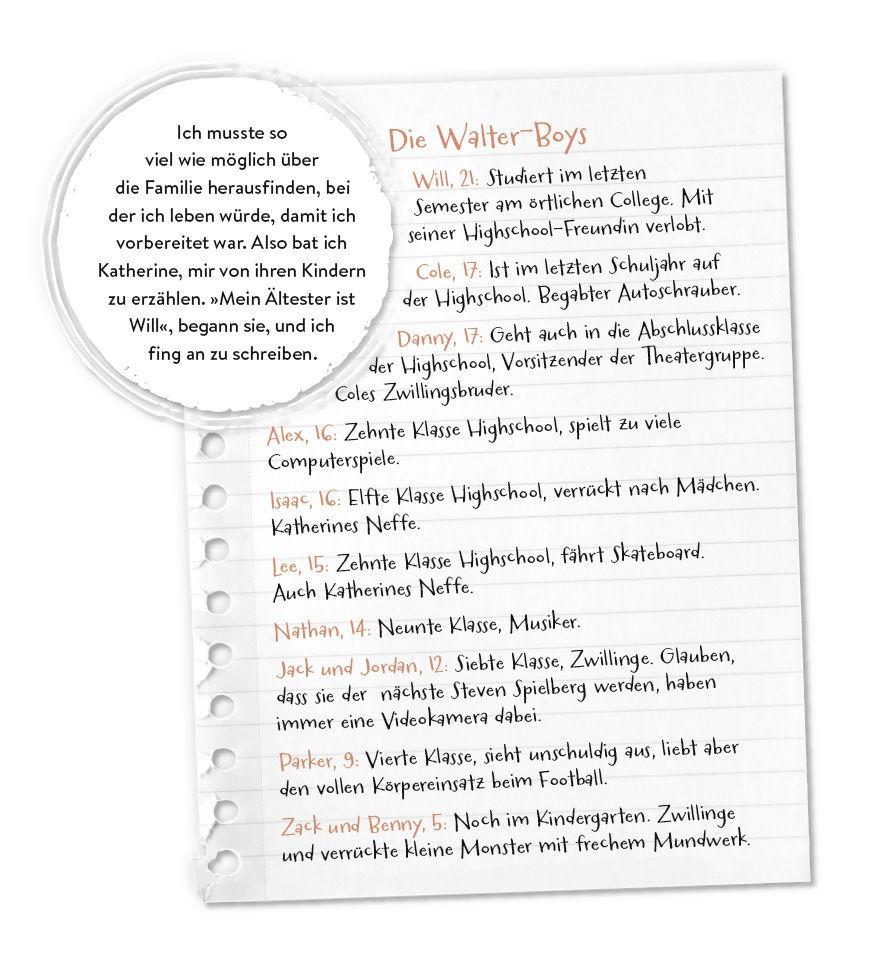 Ich musste so
viel wie möglich über
die Familie herausfinden, bei
der ich leben würde, damit ich
vorbereitet war. Also bat ich
Katherine, mir von ihren Kindern
zu erzählen. »Mein Ältester ist
Will«, begann sie, und ich
fing an zu schreiben.
Die Walter-Boys
Will, 21: Studiert im letzten
Semester am örtlichen College. Mit
seiner Highschool-Freundin verlobt.
Cole, 17: Ist im letzten Schuljahr auf
der Highschool. Begabter Autoschrauber.
Danny, 17: Geht auch in die Abschlussklasse
der Highschool, Vorsitzender der Theatergruppe.
Coles Zwillingsbruder.
Alex, 16: Zehnte Klasse Highschool, spielt zu viele
Computerspiele.
Isaac, 16: Elfte Klasse Highschool, verrückt nach Mädchen.
Katherines Neffe.
Lee, 15: Zehnte Klasse Highschool, fährt Skateboard.
Auch Katherines Neffe.
Nathan, 14: Neunte Klasse, Musiker.
Jack und Jordan, 12: Siebte Klasse, Zwillinge. Glauben,
dass sie der nächste Steven Spielberg werden, haben
immer eine Videokamera dabei.
Parker, 9: Vierte Klasse, sieht unschuldig aus, liebt aber
den vollen Körpereinsatz beim Football.
Zack und Benny, 5: Noch im Kindergarten. Zwillinge
und verrückte kleine Monster mit frechem Mundwerk.